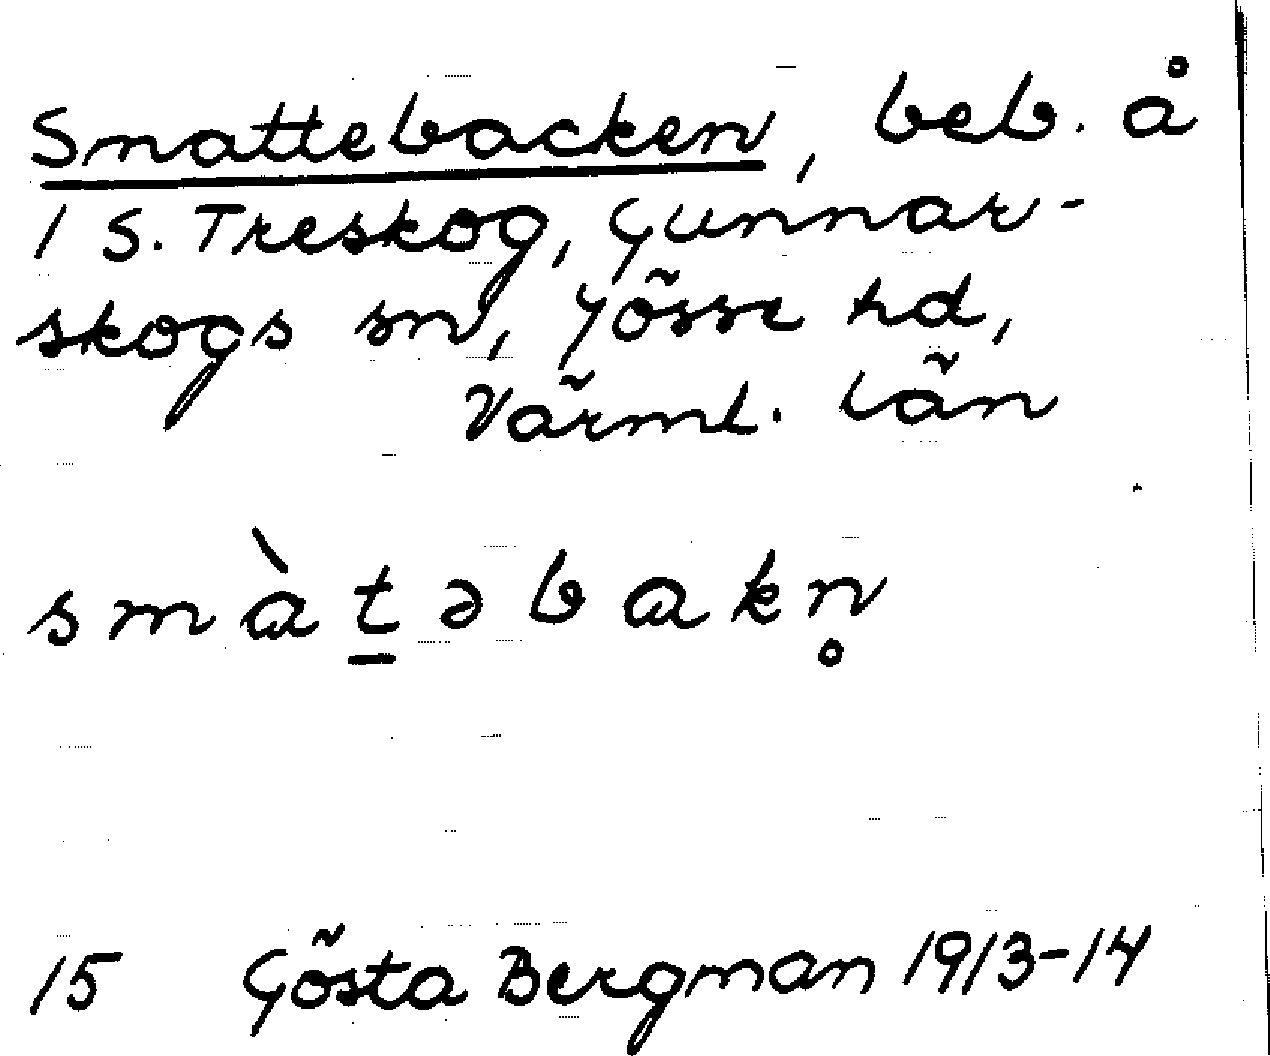 Smattebacken, beb. å
1 S. Treskog, Gunnar-
skogs sn, Jösse hd,
Värml. län
smàt̲əbakn̥
15 Gösta Bergman 1913-14